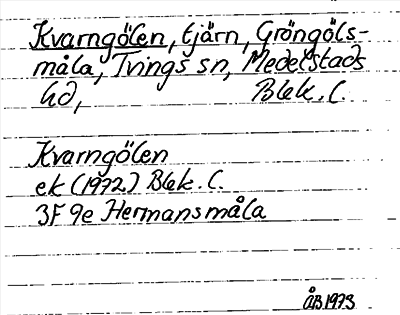 Kvarngölen, tjärn, Gröngöls-
måla, Tvings sn, Medelstads
hd, Blek. l.
Kvarngölen
ek (1972) Blek. l.
3F 9e Hermansmåla
ÅB 1973